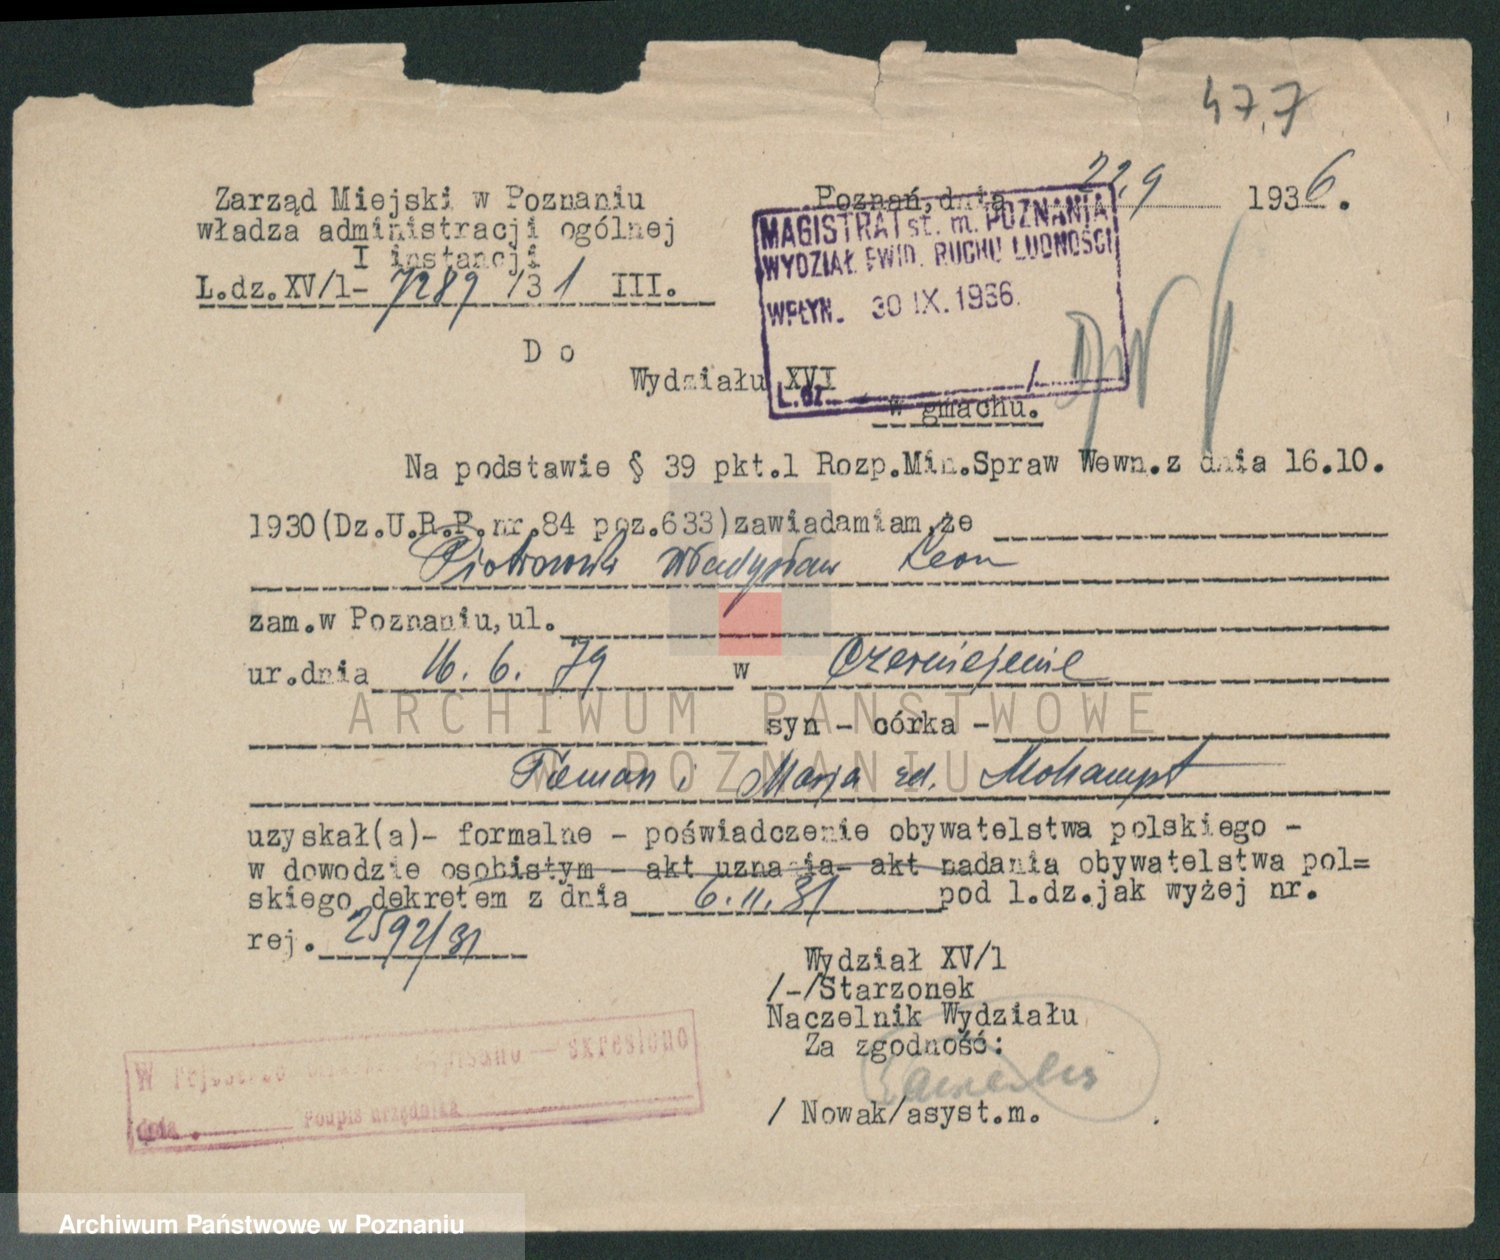 47.7
Zarząd Miejski w Poznaniu
władza administracji ogólnej
I instancji
L.dz.XV/1- 7289 /31 III.
Poznań, dnia 22.9 1936.
MAGISTRAT st. m. POZNANIA
WYDZIAŁ EWID. RUCHU LUDNOŚCI
WPŁYN. 30 IX. 1936.
L. dz. /
D o
Wydziału XVI
w gmachu.
Na podstawie § 39 pkt.1 Rozp.Min.Spraw Wewn.z dnia 16.10.
1930(Dz.U.R.P.nr.84 poz.633)zawiadamiam,że
Władysław Leon
zam.w Poznaniu,ul.
ur.dnia 16. 6. 79 w Czerniejewie
syn - córka -
Roman i Marja zd.
uzyskał(a)- formalne - poświadczenie obywatelstwa polskiego -
w dowodzie osobistym - akt uznania- akt nadania obywatelstwa pol=
skiego dekretem z dnia 6.11.31 pod l.dz.jak wyżej nr.
rej. 2592/31
Wydział XV/1
/-/Starzonek
Naczelnik Wydziału
Za zgodność:
/ Nowak/asyst.m.
W — skreślono
dnia . Podpis urzędnika
ARCHIWUM PAŃSTWOWE
W POZNANIU
Archiwum Państwowe w Poznaniu